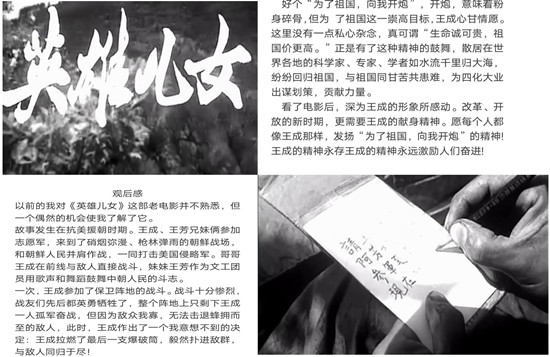 英雄儿女
观后感
以前的我对《英雄儿女》这部老电影并不熟悉，但
一个偶然的机会使我了解了它。
故事发生在抗美援朝时期。王成、王芳兄妹俩参加
志愿军，来到了硝烟弥漫、枪林弹雨的朝鲜战场，
和朝鲜人民并肩作战，一同打击美国侵略军。哥哥
王成在前线与敌人直接战斗，妹妹王芳作为文工团
员用歌声和舞蹈鼓舞中朝人民的斗志。
一次，王成参加了保卫阵地的战斗。战斗十分惨烈，
战友们先后都英勇牺牲了，整个阵地上只剩下王成
一人孤军奋战，但因为敌众我寡，无法击退蜂拥而
至的敌人，此时，王成作出了一个我意想不到的决
定：王成拉燃了最后一支爆破筒，毅然扑进敌群，
与敌人同归于尽！
好个“为了祖国，向我开炮”，开炮，意味着粉
身碎骨，但为 了祖国这一崇高目标，王成心甘情愿。
这里没有一点私心杂念，真可谓“生命诚可贵，祖
国价更高。”正是有了这种精神的鼓舞，散居在世
界各地的科学家、专家、学者如水流千里归大海，
纷纷回归祖国，与祖国同甘苦共患难，为四化大业
出谋划策，贡献力量。
看了电影后，深为王成的形象所感动。改革、开
放的新时期，更需要王成的献身精神。愿每个人都
像王成那样，发扬“为了祖国，向我开炮”的精神！
王成的精神永存王成的精神永远激励人们奋进！
請
現在